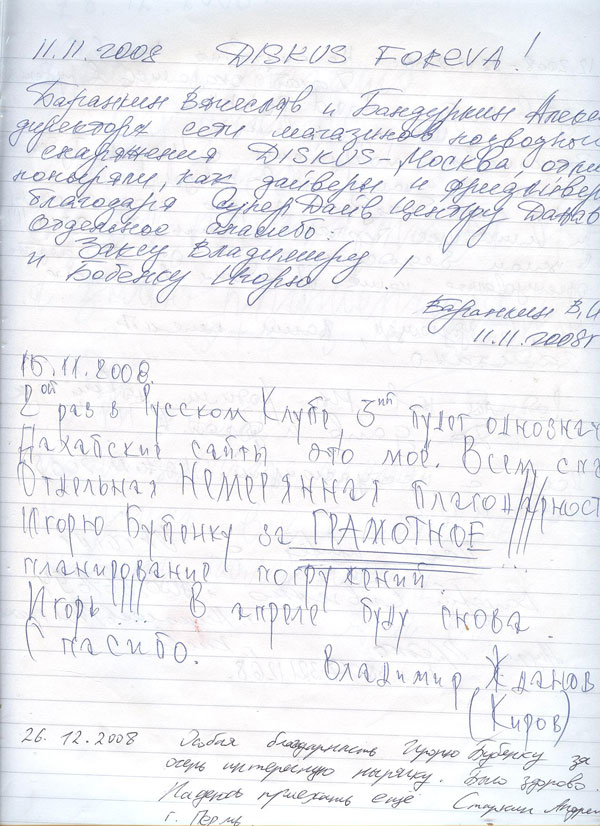 11.11.2008 DISKUS FOREVA!
Баранкин Вячеслав и Бандуркин Алекс
директора сети магазинов подводного
снаряжения DISKUS-Москва, отли
поныряли, как дайверы и фридайвер
благодаря Супер Дайв Центру Дахаб
Отдельное спасибо:
Заксу Владимиру
и Бобенку Игорю !
Баранкин В.И
11.11.2008г
15.11.2008.
2ой раз в Русском Клубе, 3ий будет однознач
Дахабские сайты это мое. Всем спа
Отдельная НЕМЕРЯННАЯ благодарност
Игорю Бубенку за ГРАМОТНОЕ !!!!
планирование погружений.
Игорь!!!! В апреле буду снова.
Спасибо.
Владимир Жданов
(Киров)
26.12.2008 Особая благодарность Игорю Бубенку за
очень интересную нырялку. Было здорово.
Надеюсь приехать ещё Андрей
г. Пермь